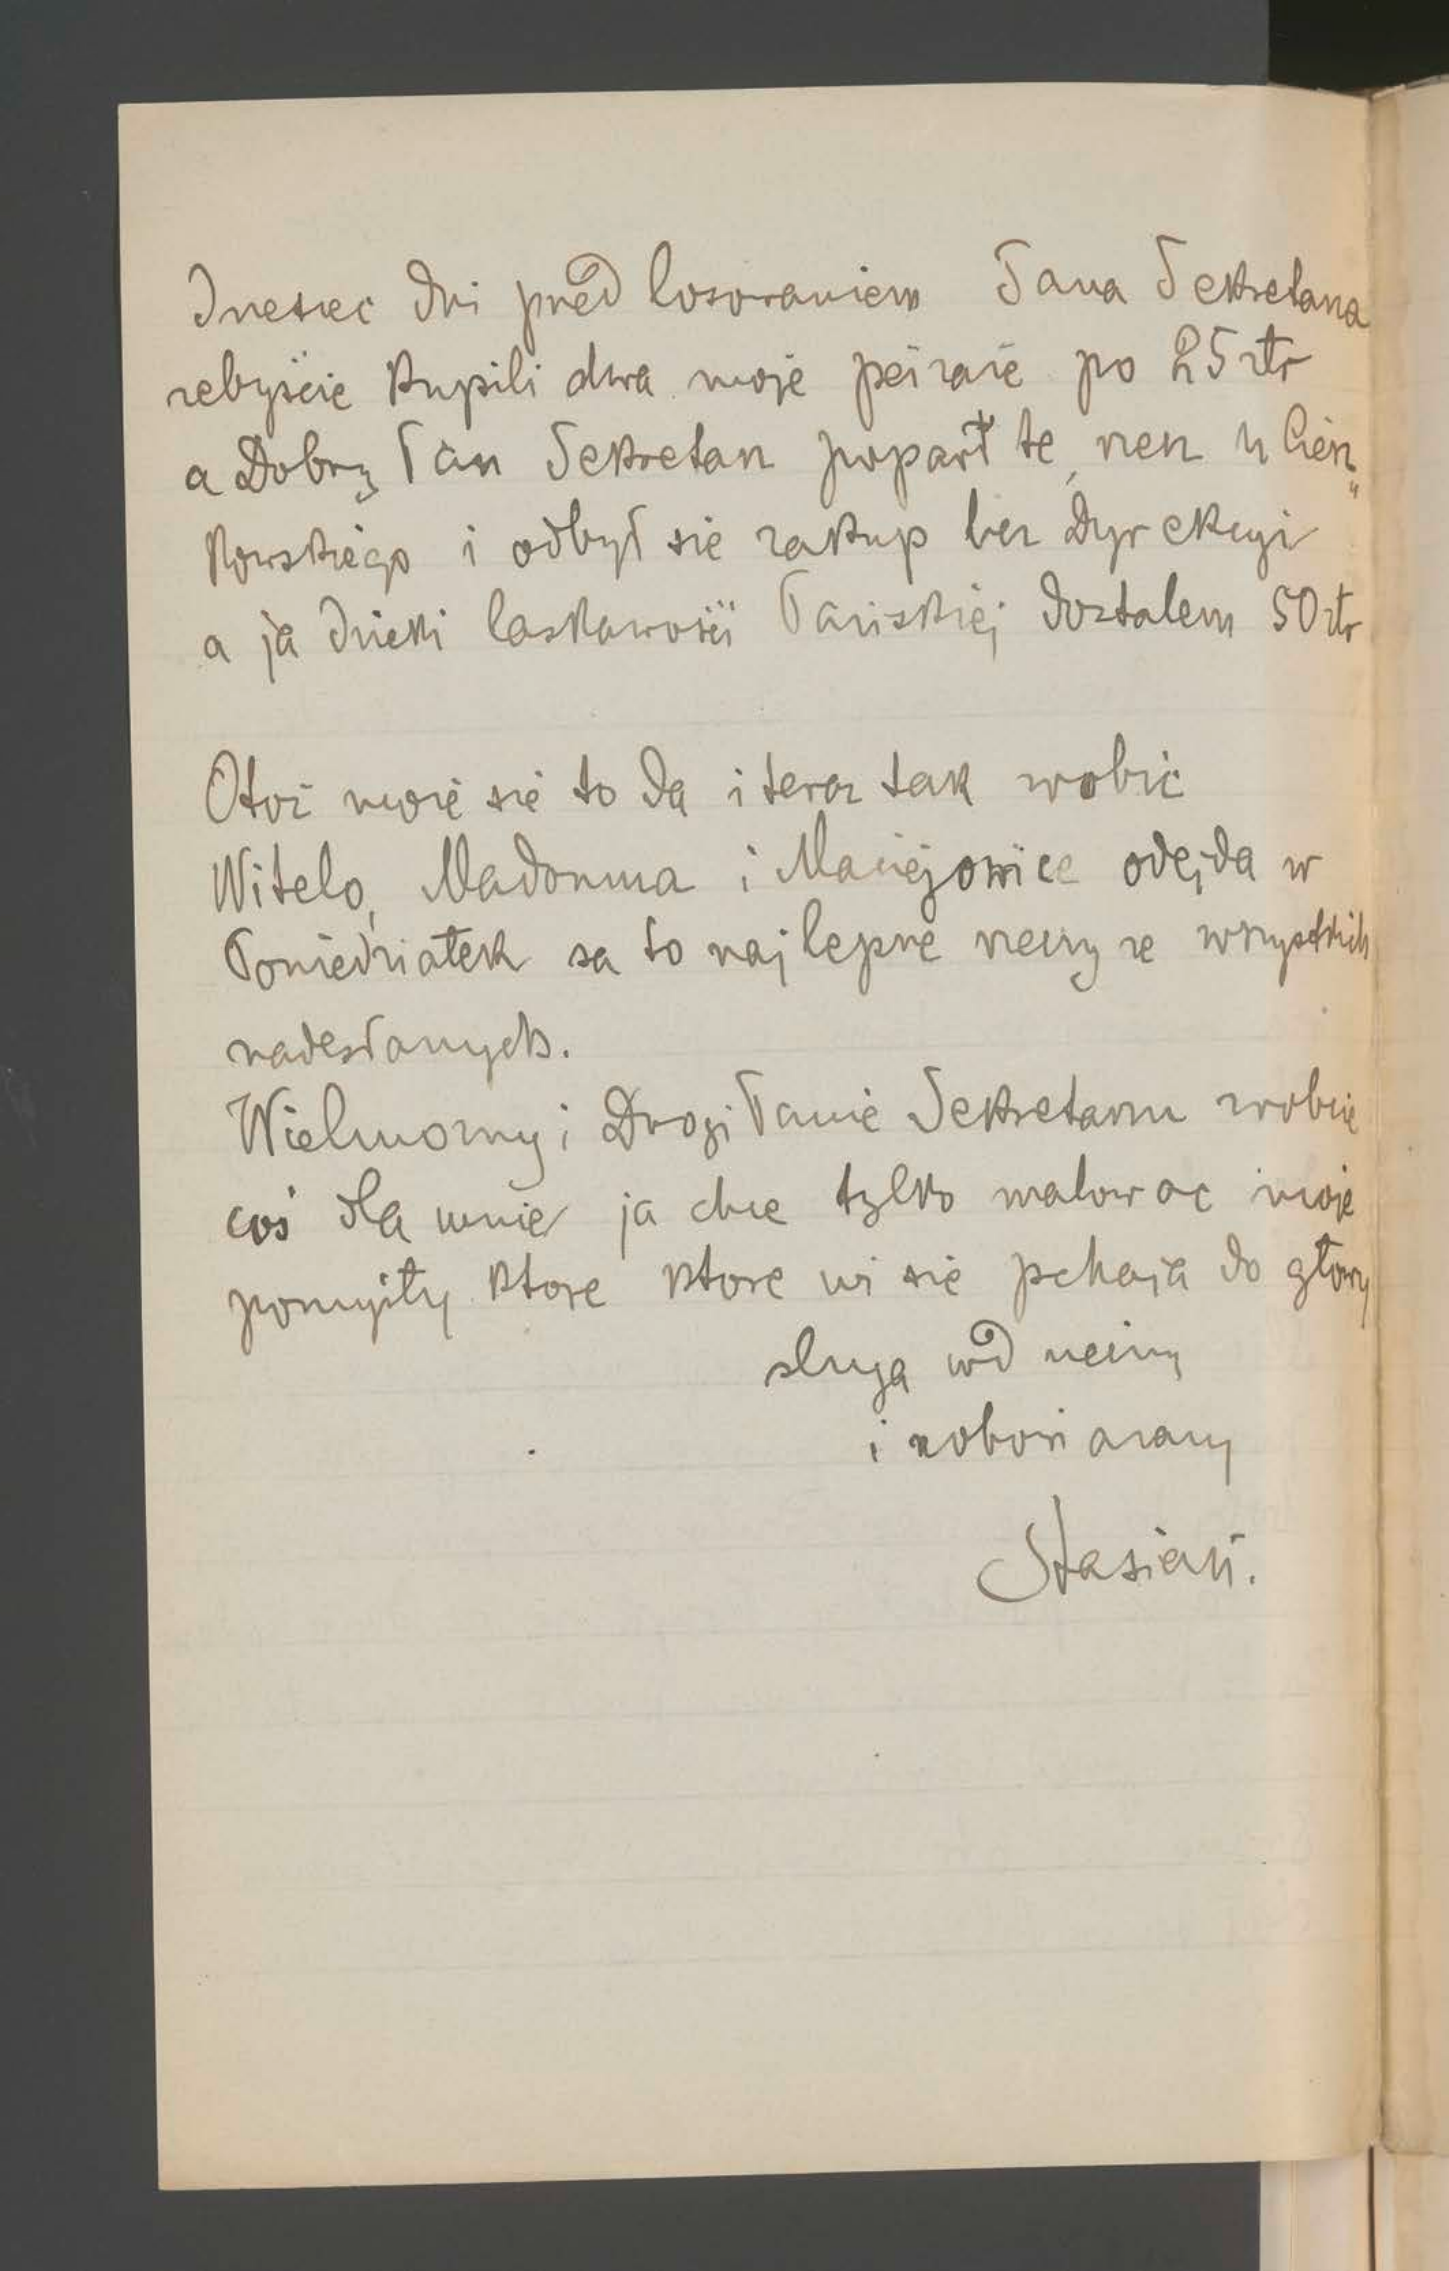 Dziesiec dni przed losowaniem Pana Sekretarza
zebyście kupili dwa moje pejzaże po 25 złr
a Dobry Pan Sekretarz poparł te rzecz u Cień„
kowskiego i odbył sie zakup bez Dyrekcyi
a ja dzieki laskawości Pańskiej dostalem 50 złr
Otoż może sie to da i teraz tak zrobić
Witelo, Madonna i Maciejowice odejda w
Poniedziałek sa to najlepsze rzeczy ze wszystkich
nadesłanych.
Wielmozny i Drogi Panie Sekretarzu zrobcie
coś dla mnie ja chce tylko malowac moje
pomysły ktore ktore mi sie pchaja do głowy
sluga
i zobowiazany
Stasiak.